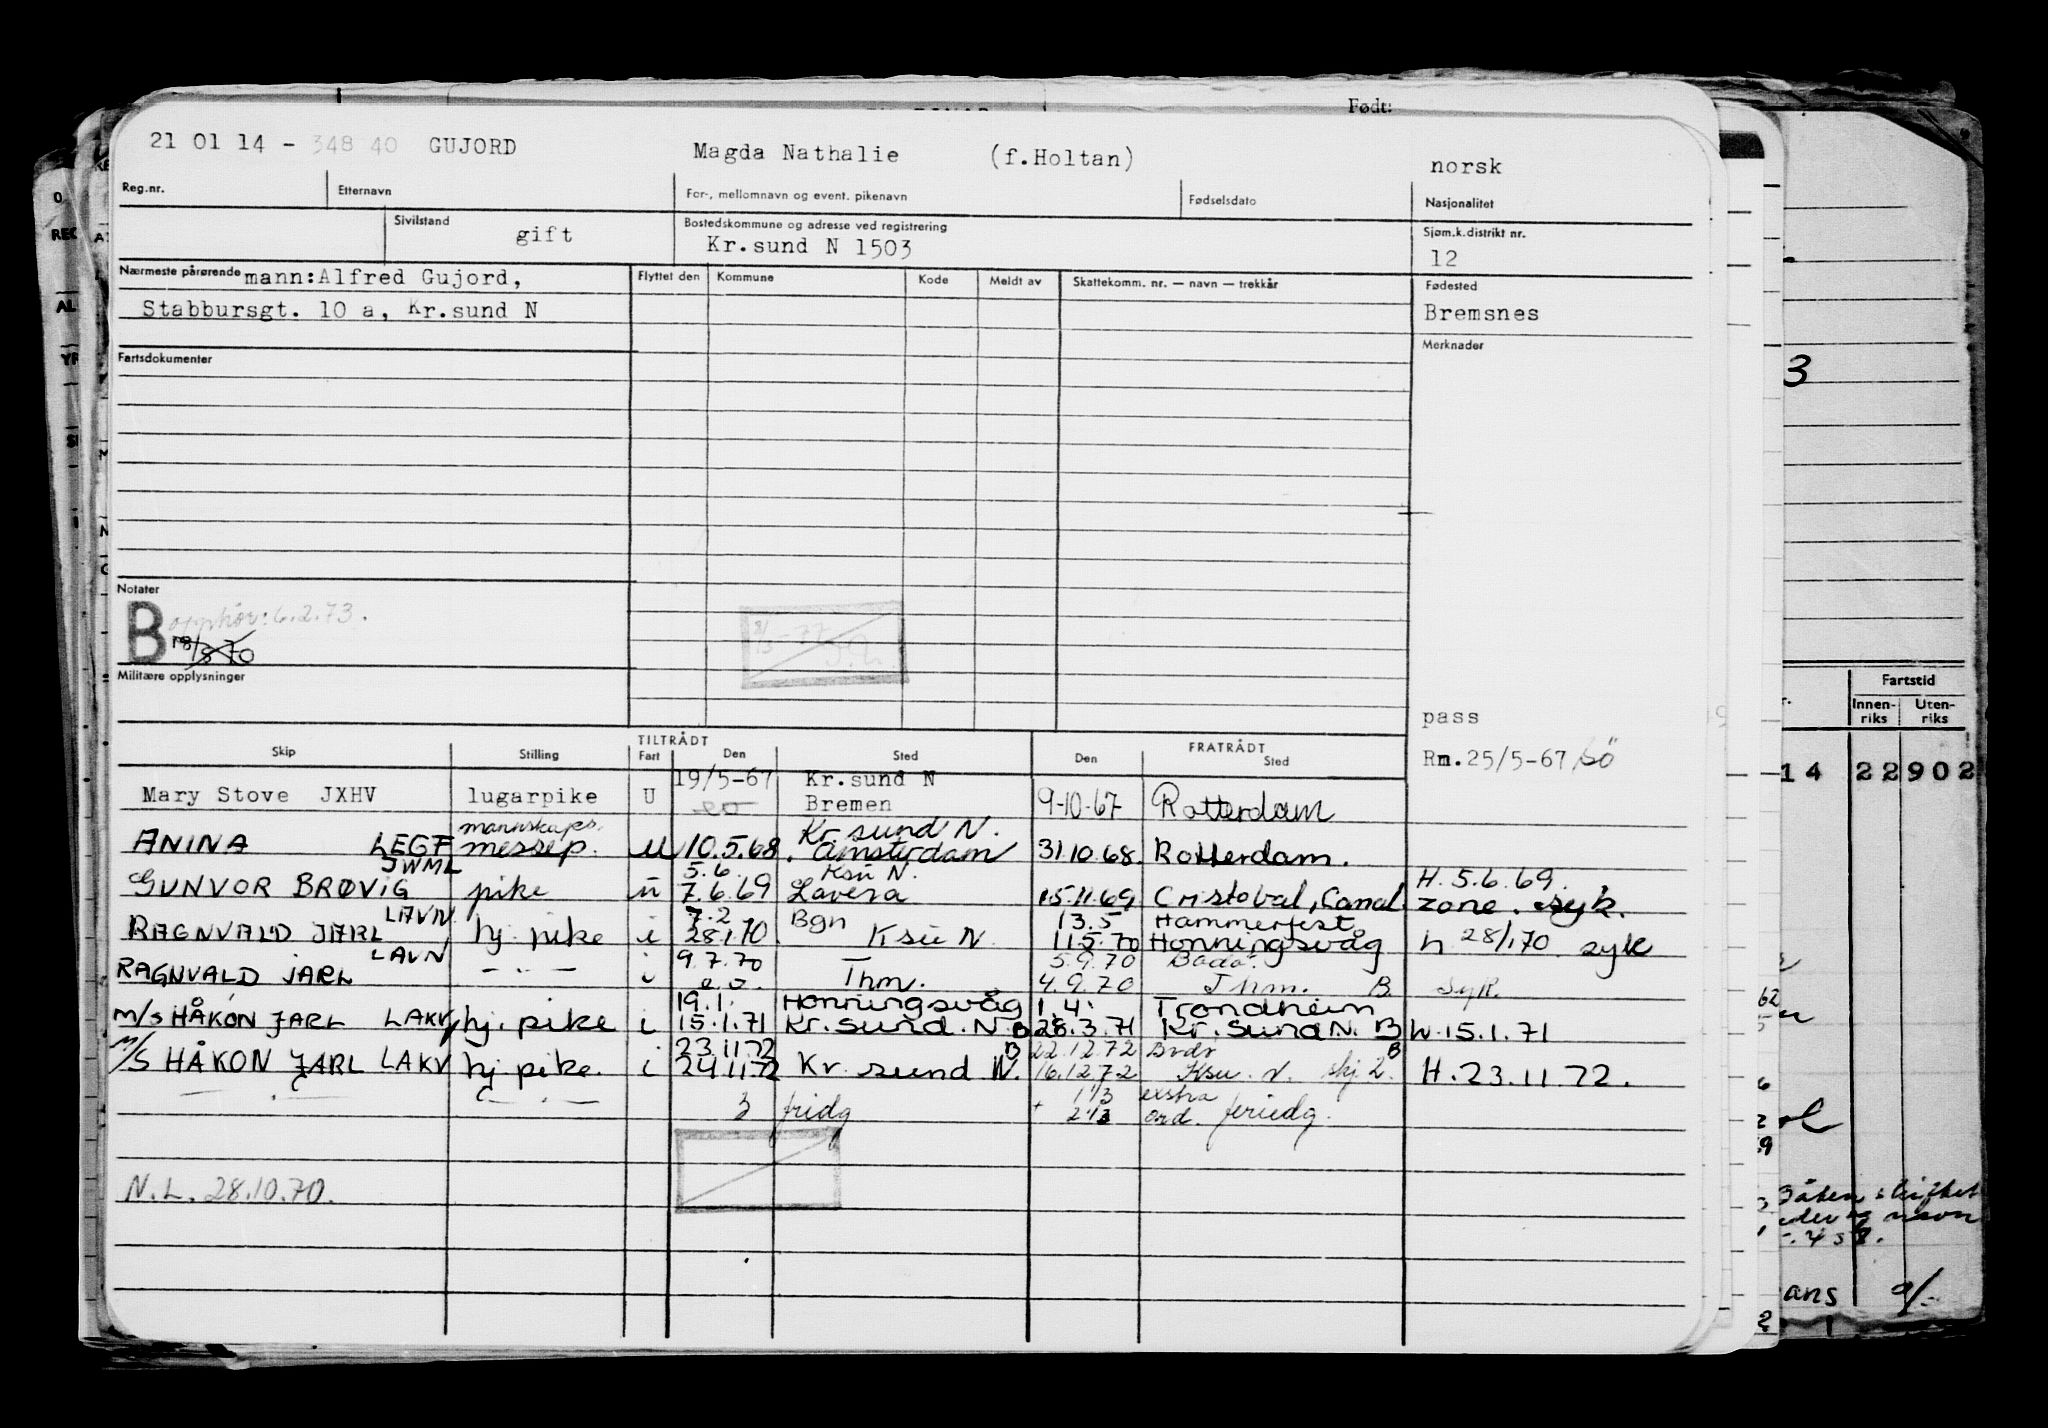 Født:
21 01 14 - 348 40 GUJORD Magda Nathalie (f.Holtan) norsk
Reg.nr. Etternavn For-, mellomnavn og event. pikenavn Fødselsdato Nasjonalitet
Sivilstand gift Bostedskommune og adresse ved registrering Sjøm.k.distrikt nr.
Kr.sund N 1503 12
Nærmeste pårørende mann:Alfred Gujord, Flyttet den Kommune Kode Meldt av Skattekomm. nr. — navn — trekkår Fødested
Stabbursgt. 10 a, Kr.sund N Bremsnes
Fartsdokumenter Merknader
3
Notater
B opphør: 6.2.73.
18/8 70
Militære opplysninger
Fartstid
Innen-riks Uten-riks
pass
Skip Stilling TILTRÅDT Fart Den Sted FRATRÅDT Den Sted
Rm.25/5-67
14 22 902
19/5-67 Kr.sund N
Mary Stove JXHV lugarpike U Bremen 9-10-67 Rotterdam
mannskaps. Kr sund N.
ANINA LEGF messep. u 10.5.68. Amsterdam 31.10.68. Rotterdam.
JWML 5.6. Ksu N. H. 5.6.69.
GUNVOR BRØVIG pike u 7.6.69 Lavera 15.11.69 Cristobal, Canal zone. syk.
LAVN 7.2 Bgn 13.5 Hammerfest
RAGNVALD JARL hj. pike i 28.1.70 Ksu N. 11.5.70 Honningsvåg h 28/1 70 syk
LAVN 9.7.70 5.9.70 Bodø.
RAGNVALD JARL — " — i e.o. Thm. 4.9.70 Thm. B. Syk.
19.1. Honningsvåg 1.4. Trondheim
m/s HÅKON JARL LAKV hj. pike i 15.1.71 Kr.sund.N.B 28.3.71 Kr.sund N. B h.15.1.71
23.11.72 B 22.12.72 B
M/S HÅKON JARL LAKV hj. pike. i 24.11.72 Kr. sund N. 16.12.72 Ksu. N. skj. 2. H. 23.11.72.
3 fridg + 1 1/3 exstra
2 1/3 ord. feriedg.
N.L. 28.10.70.
ans